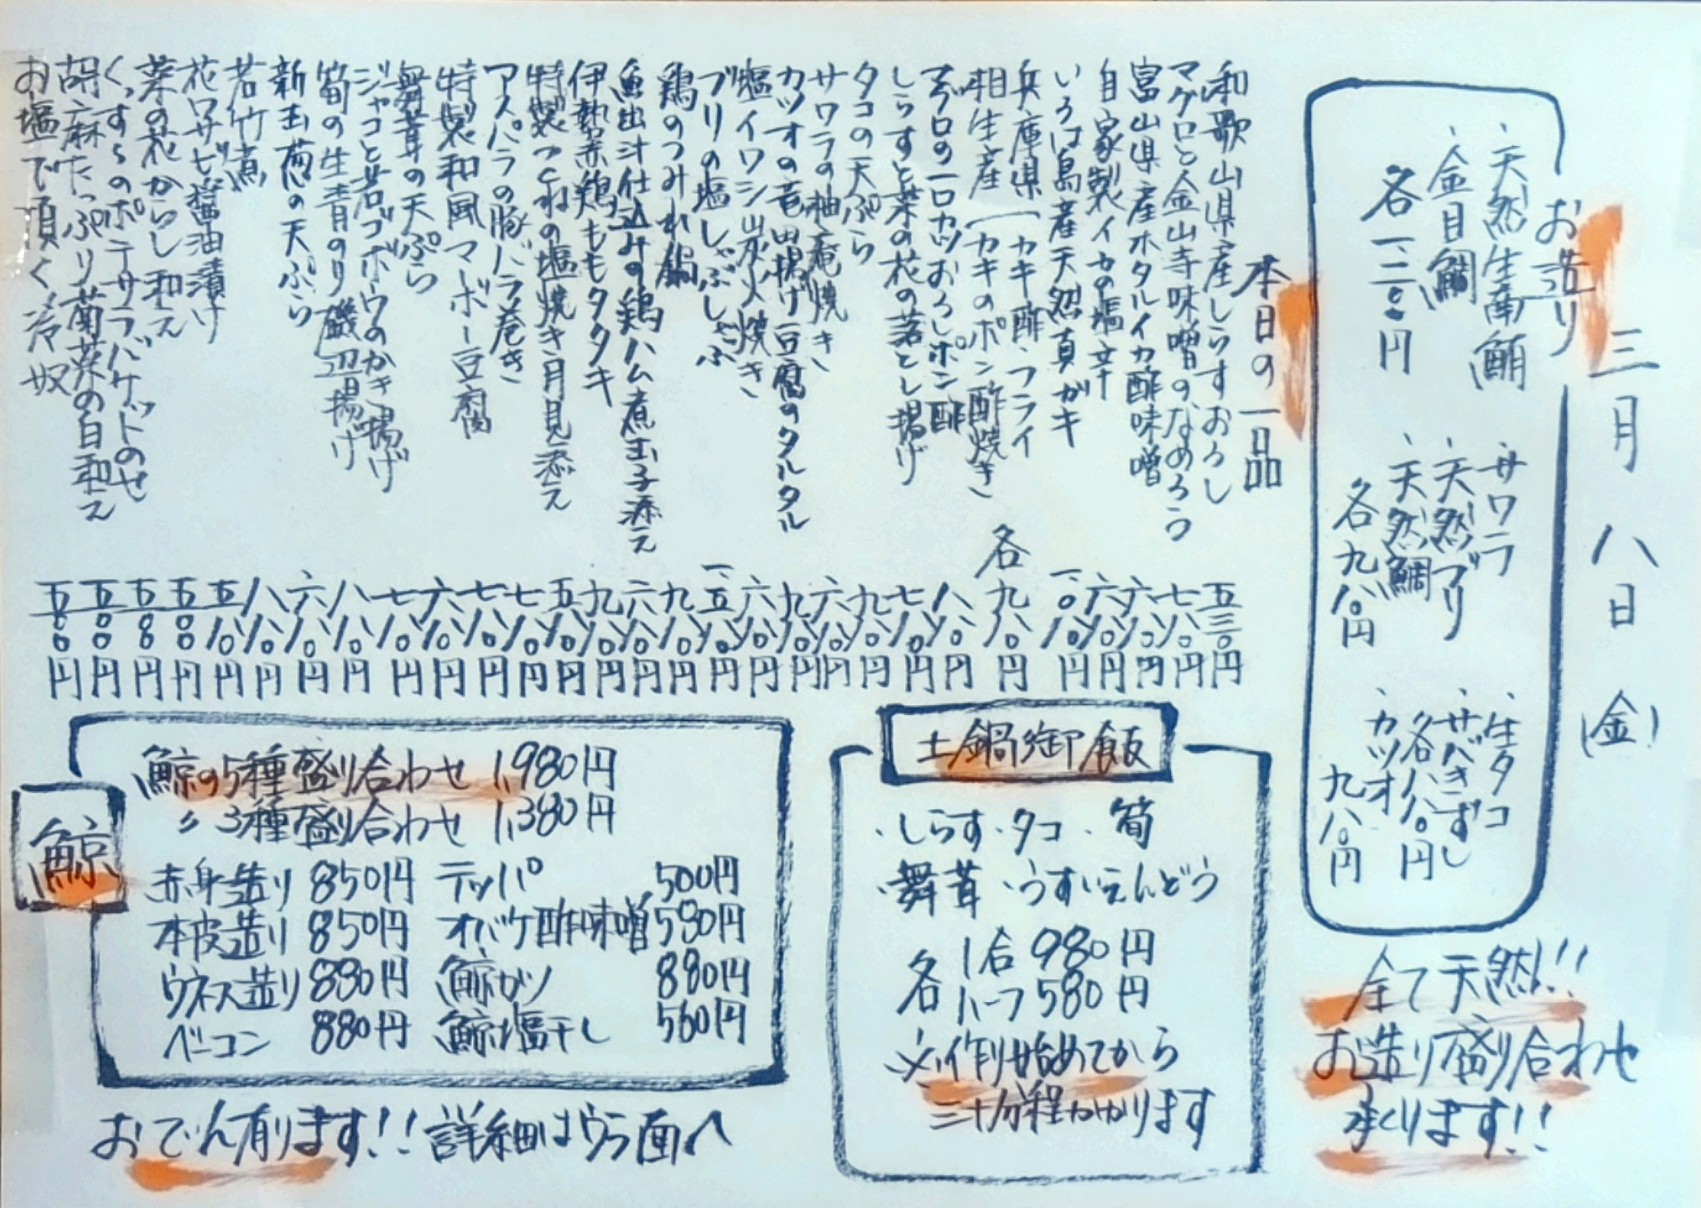 三月八日(金)
お造り
・天然生南鮪
・金目鯛
・サワラ
・天然ブリ
・天然鯛
各九八〇円
・生タコ
・サバきずし
各八八〇円
・カツオ
九八〇円
全て天然!!
お造り盛り合わせ
承ります!!
本日の一品
和歌山県産しらすおろし 五三〇円
マグロと金山寺味噌のなめろう 七八〇円
富山県産ホタルイカ酢味噌 六八〇円
自家製イカの塩辛 六八〇円
いろは島産天然真ガキ 一、〇八〇円
兵庫県〔カキ酢・フライ
相生産〔カキのポン酢焼き 各九八〇円
マグロの一口カツおろしポン酢 八八〇円
しらすと菜の花の落とし揚げ 七八〇円
タコの天ぷら 九八〇円
サワラの柚庵焼き 六八〇円
カツオの竜田揚げ豆腐のタルタル 九八〇円
塩イワシ炭火焼き 六八〇円
ブリの塩しゃぶしゃぶ 一、五八〇円
鶏のつみれ鍋 九八〇円
魚出汁仕込みの鶏ハム煮玉子添え 六八〇円
伊勢赤鶏ももタタキ 九八〇円
特製つくねの塩焼き月見添え 五八〇円
アスパラの豚バラ巻き 七八〇円
特製和風マーボー豆腐 七八〇円
舞茸の天ぷら 六八〇円
ジャコと若ゴボウのかき揚げ 七八〇円
筍の生青のり磯辺揚げ 八八〇円
新玉葱の天ぷら 六八〇円
若竹煮 八八〇円
花ワサビ醤油漬け 五八〇円
菜の花からし和え 五〇〇円
のポテサラバケットのせ 五〇〇円
胡麻たっぷり菊菜の白和え 五〇〇円
お塩で頂く冷奴 五〇〇円
土鍋御飯
・しらす・タコ・筍
・舞茸・うすいえんどう
各1合 980円
各ハーフ 580円
※作り始めてから
三十分程かかります
鯨
鯨の5種盛り合わせ 1,980円
〃 3種盛り合わせ 1,380円
赤身造り 850円 テッパ 500円
本皮造り 850円 オバケ酢味噌 580円
ウネス造り 880円 鯨ガツ 880円
ベーコン 880円 鯨塩干し 560円
おでん有ります!!詳細はウラ面へ